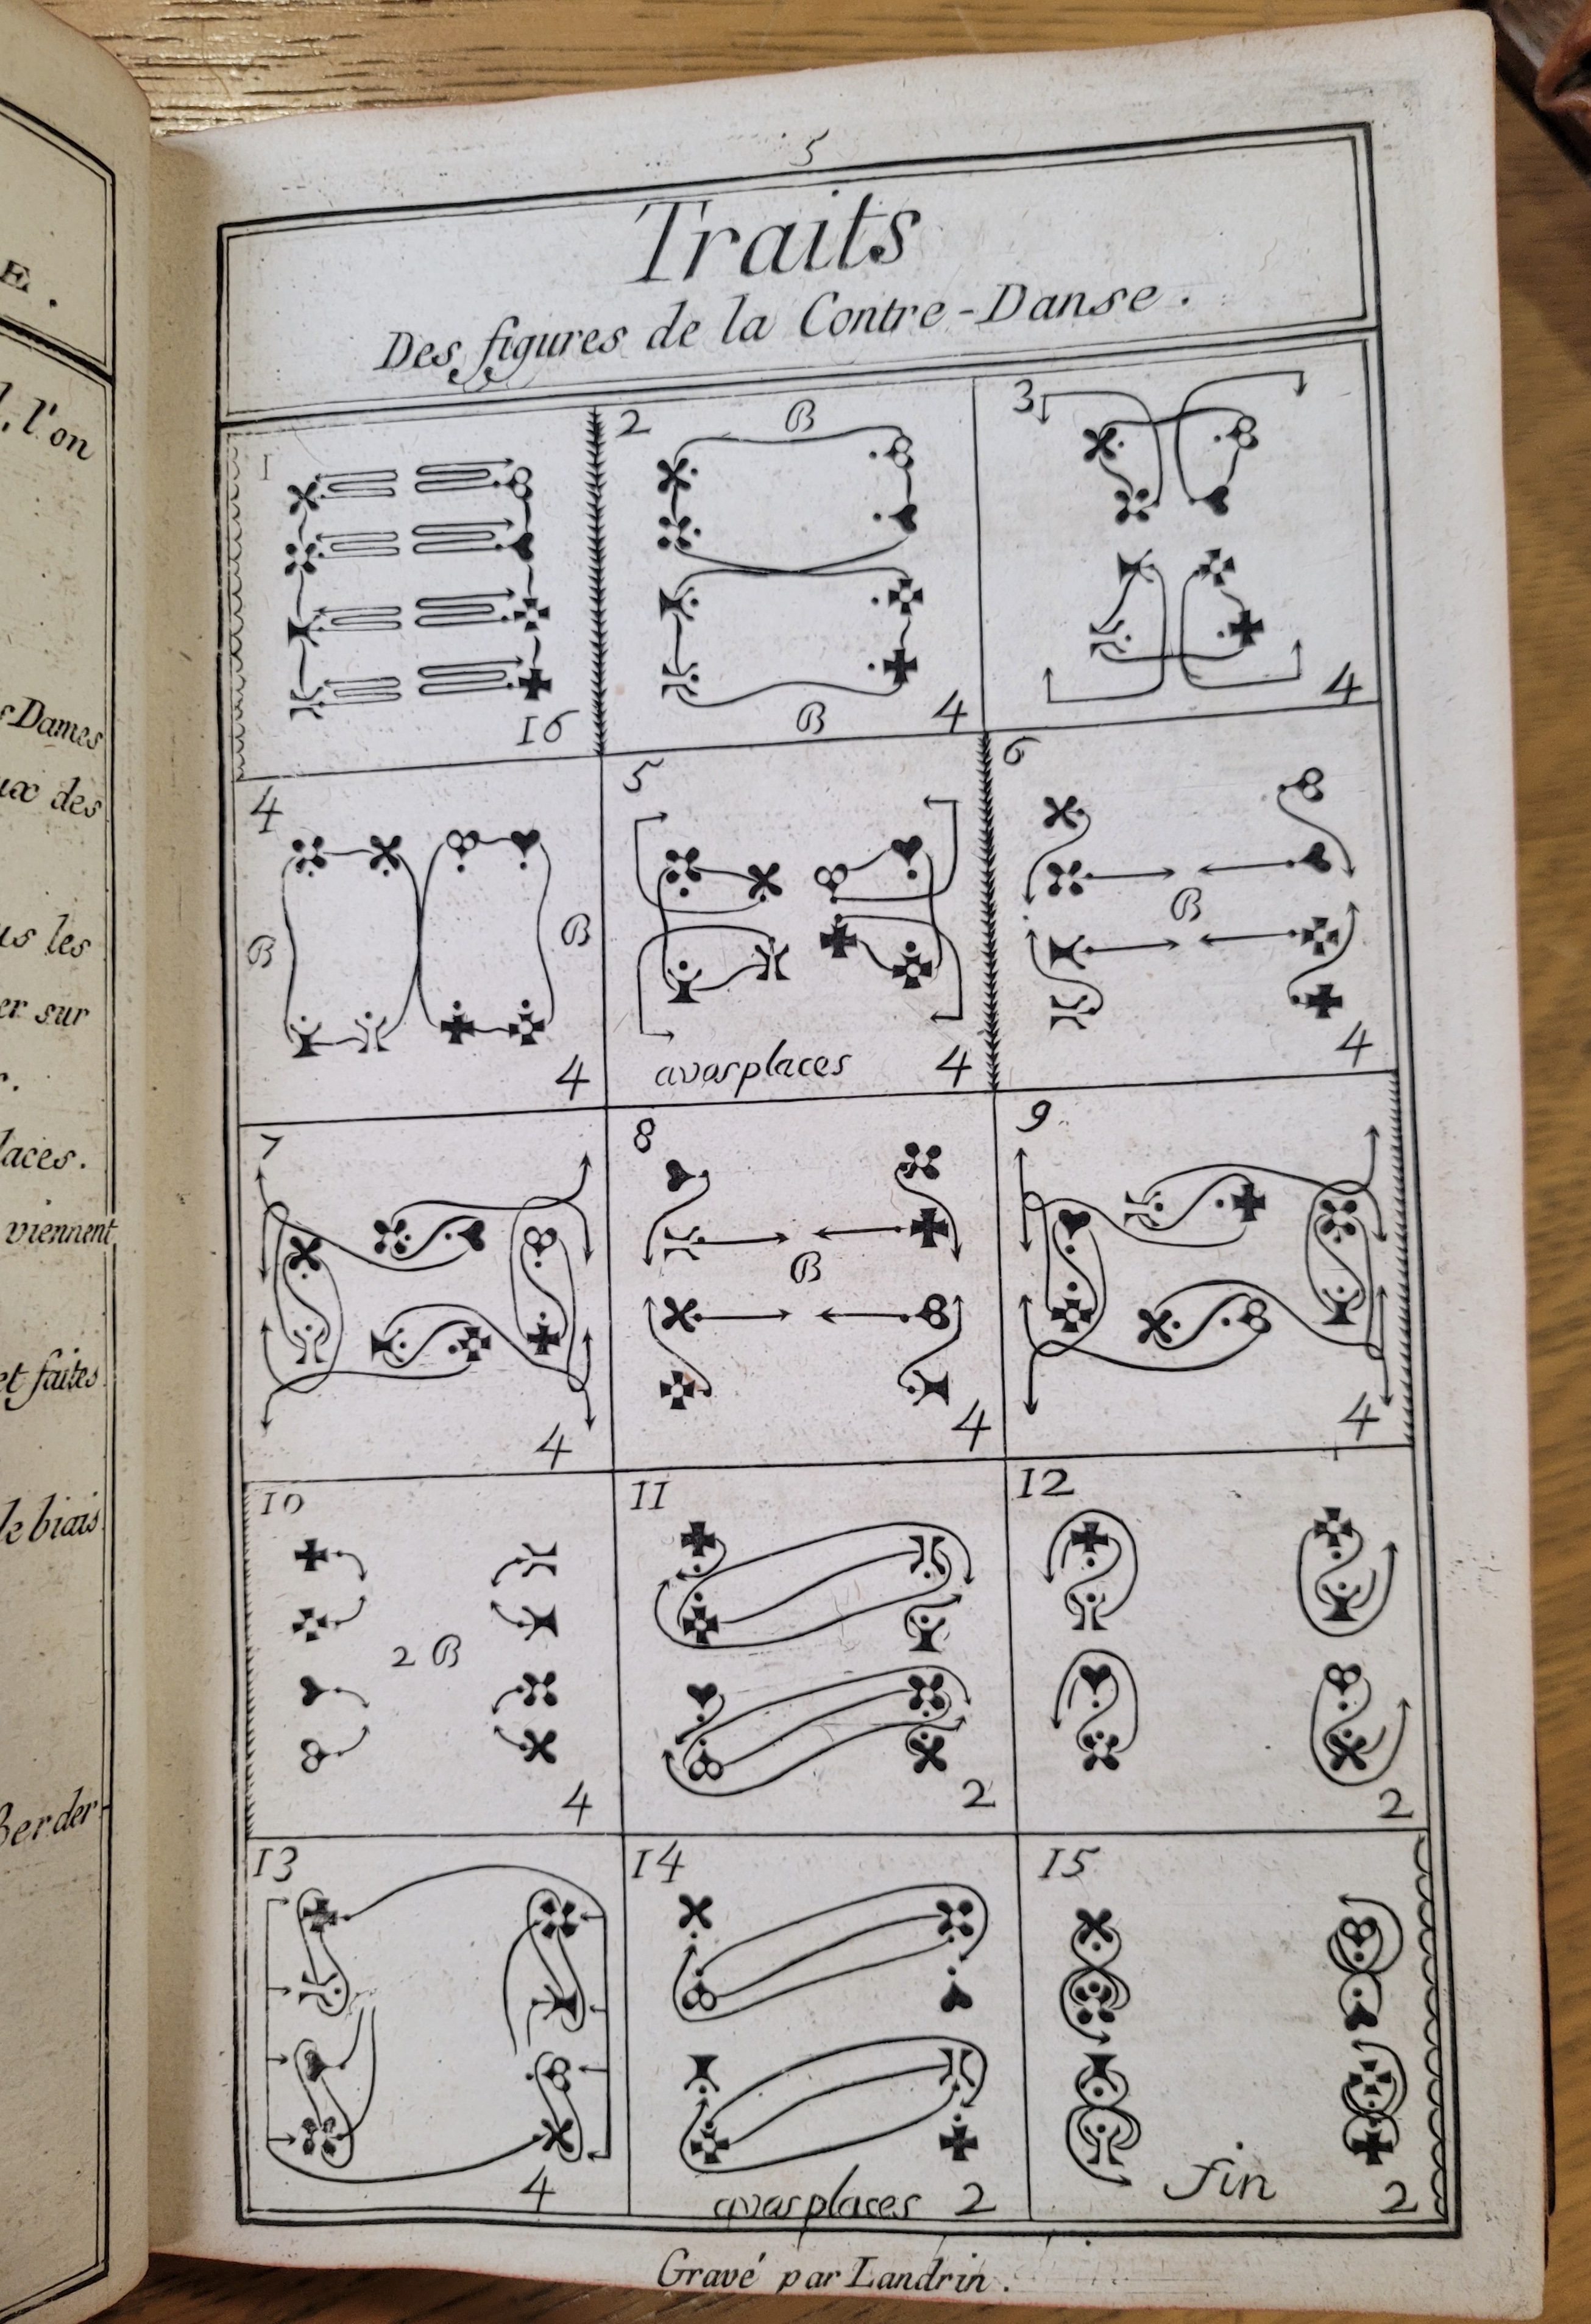 E.
l'on
Dames
des
les
er sur
r.
laces.
viennent
et faites
le biais
Berder
5
Traits
Des figures de la Contre-Danse.
1
16
2
B
B
4
3
4
4
B
B
4
5
avosplaces
4
6
B
4
7
4
8
B
4
9
4
10
2 B
4
11
2
12
2
13
4
14
avosplaces 2
15
fin
2
Gravé par Landrin.